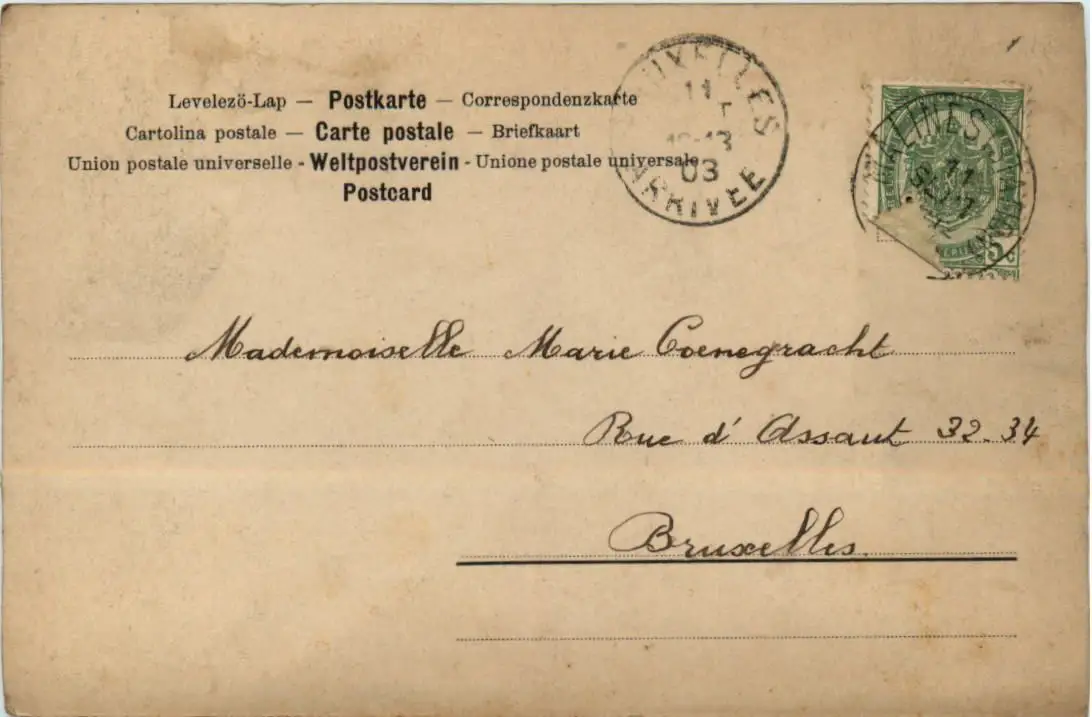 Levelezö-Lap — Postkarte — Correspondenzkarte
Cartolina postale — Carte postale — Briefkaart
Union postale universelle - Weltpostverein - Unione postale universale
Postcard
UXELLES
11
03
ARRIVÉE
MALINES
11
SEPT
5 C
Mademoiselle Marie Coenegracht
Rue d'Assaut 32-34
Bruxelles